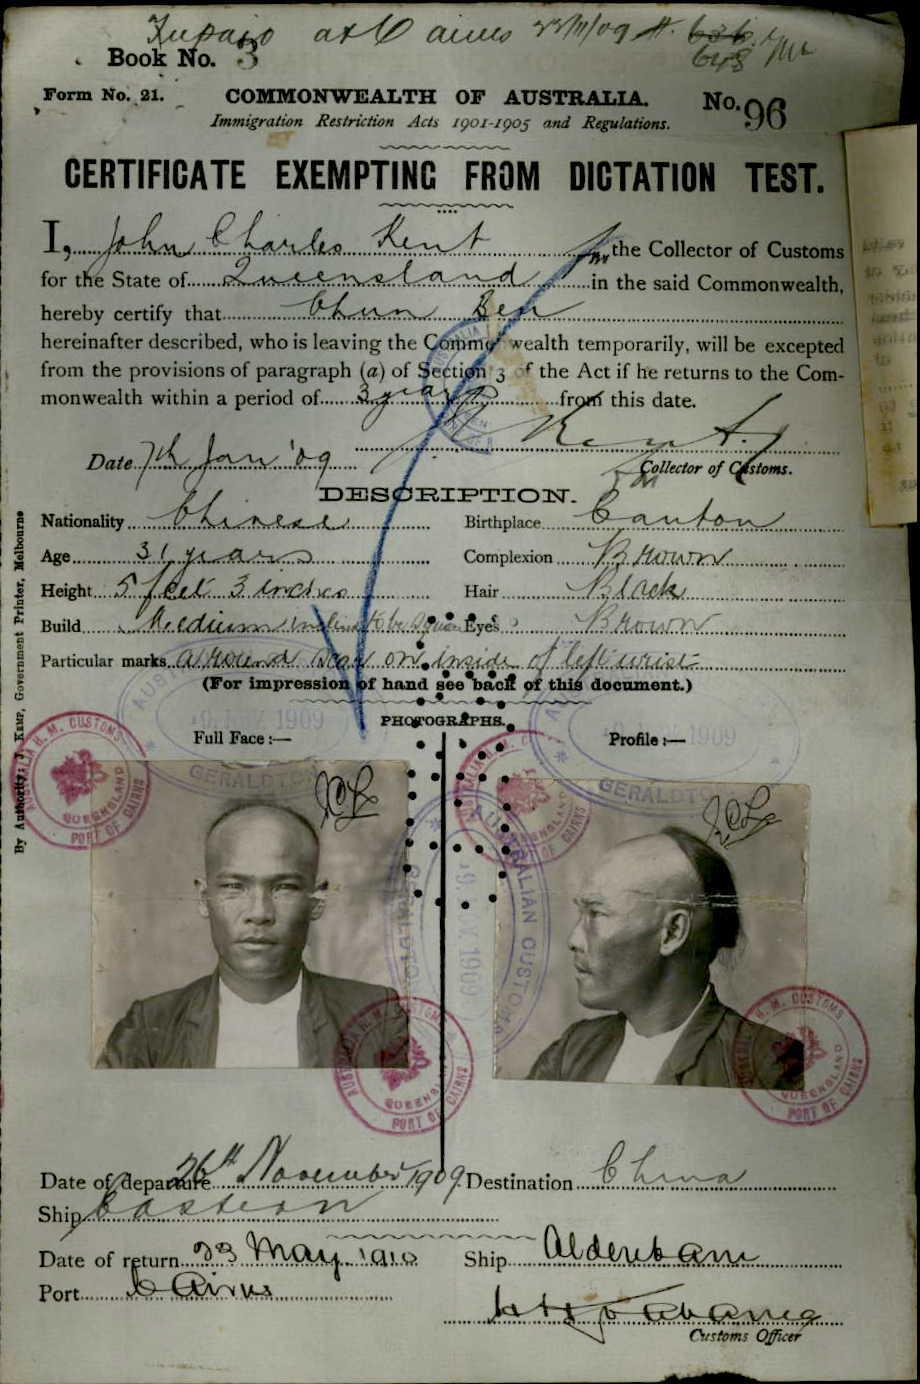 at Cairns 23/11/09
Book No. 3
Form No. 21. COMMONWEALTH OF AUSTRALIA. No. 96
Immigration Restriction Acts 1901-1905 and Regulations.
CERTIFICATE EXEMPTING FROM DICTATION TEST.
I, John Charles Kent the Collector of Customs
for the State of Queensland in the said Commonwealth,
hereby certify that Chun Sen
hereinafter described, who is leaving the Commonwealth temporarily, will be excepted
from the provisions of paragraph (a) of Section 3 of the Act if he returns to the Com-
monwealth within a period of 3 years from this date.
Date 7th Jan '09
Collector of Customs.
DESCRIPTION.
Nationality Chinese Birthplace Canton
Age 31 years Complexion Brown
Height 5 feet 3 inches Hair Black
Build Medium inclined to be square Eyes Brown
Particular marks a round scar on inside of left wrist
(For impression of hand see back of this document.)
PHOTOGRAPHS.
Full Face :— Profile :—
AUSTRALIA H. M. CUSTOMS QUEENSLAND PORT OF CAIRNS
AUSTRALIA H. M. CUSTOMS QUEENSLAND PORT OF CAIRNS
1909 GERALDTON
1909 GERALDTON
AUSTRALIAN CUSTOMS GERALDTON 1909
AUSTRALIA H. M. CUSTOMS QUEENSLAND PORT OF CAIRNS
AUSTRALIA H. M. CUSTOMS QUEENSLAND PORT OF CAIRNS
By Authority: J. Kemp, Government Printer, Melbourne
Date of departure 26th November 1909 Destination China
Ship Eastern
Date of return 23 May 1910 Ship Aldenham
Port Cairns
Customs Officer